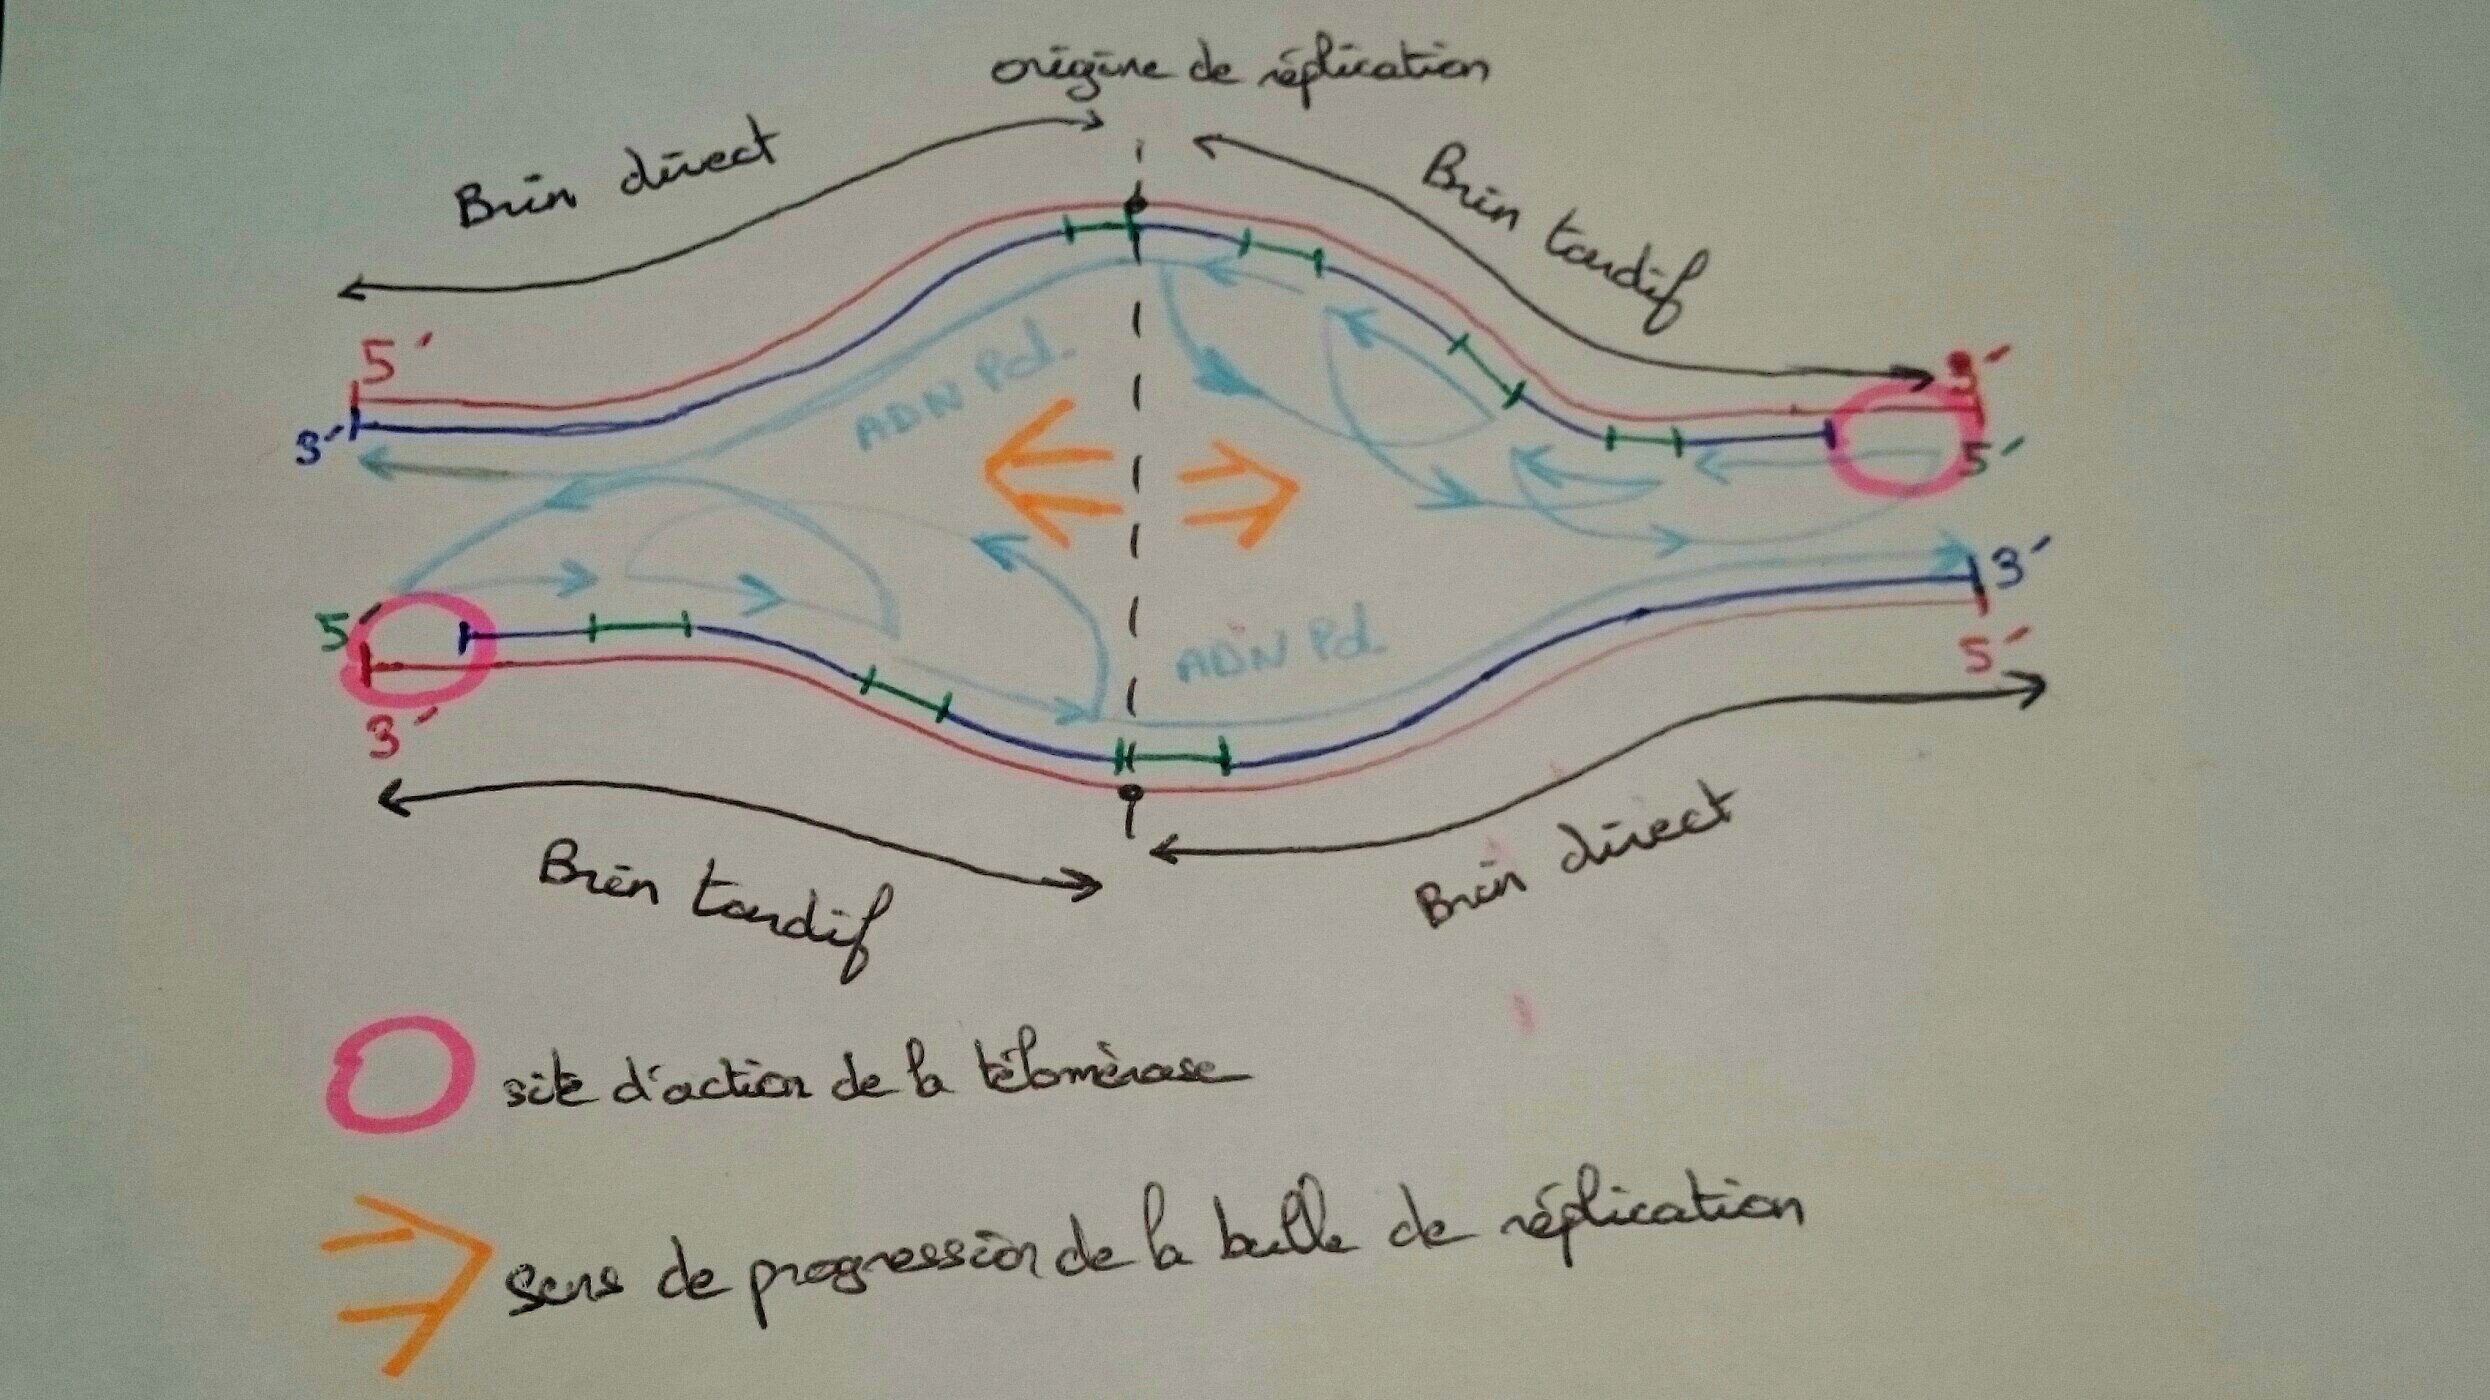 origine de réplication
Brin direct
Brin tardif
5'
3'
ADN Pol.
3'
5'
5'
3'
ADN Pol.
3'
5'
Brin tardif
Brin direct
site d'action de la télomèrase
sens de progression de la bulle de réplication